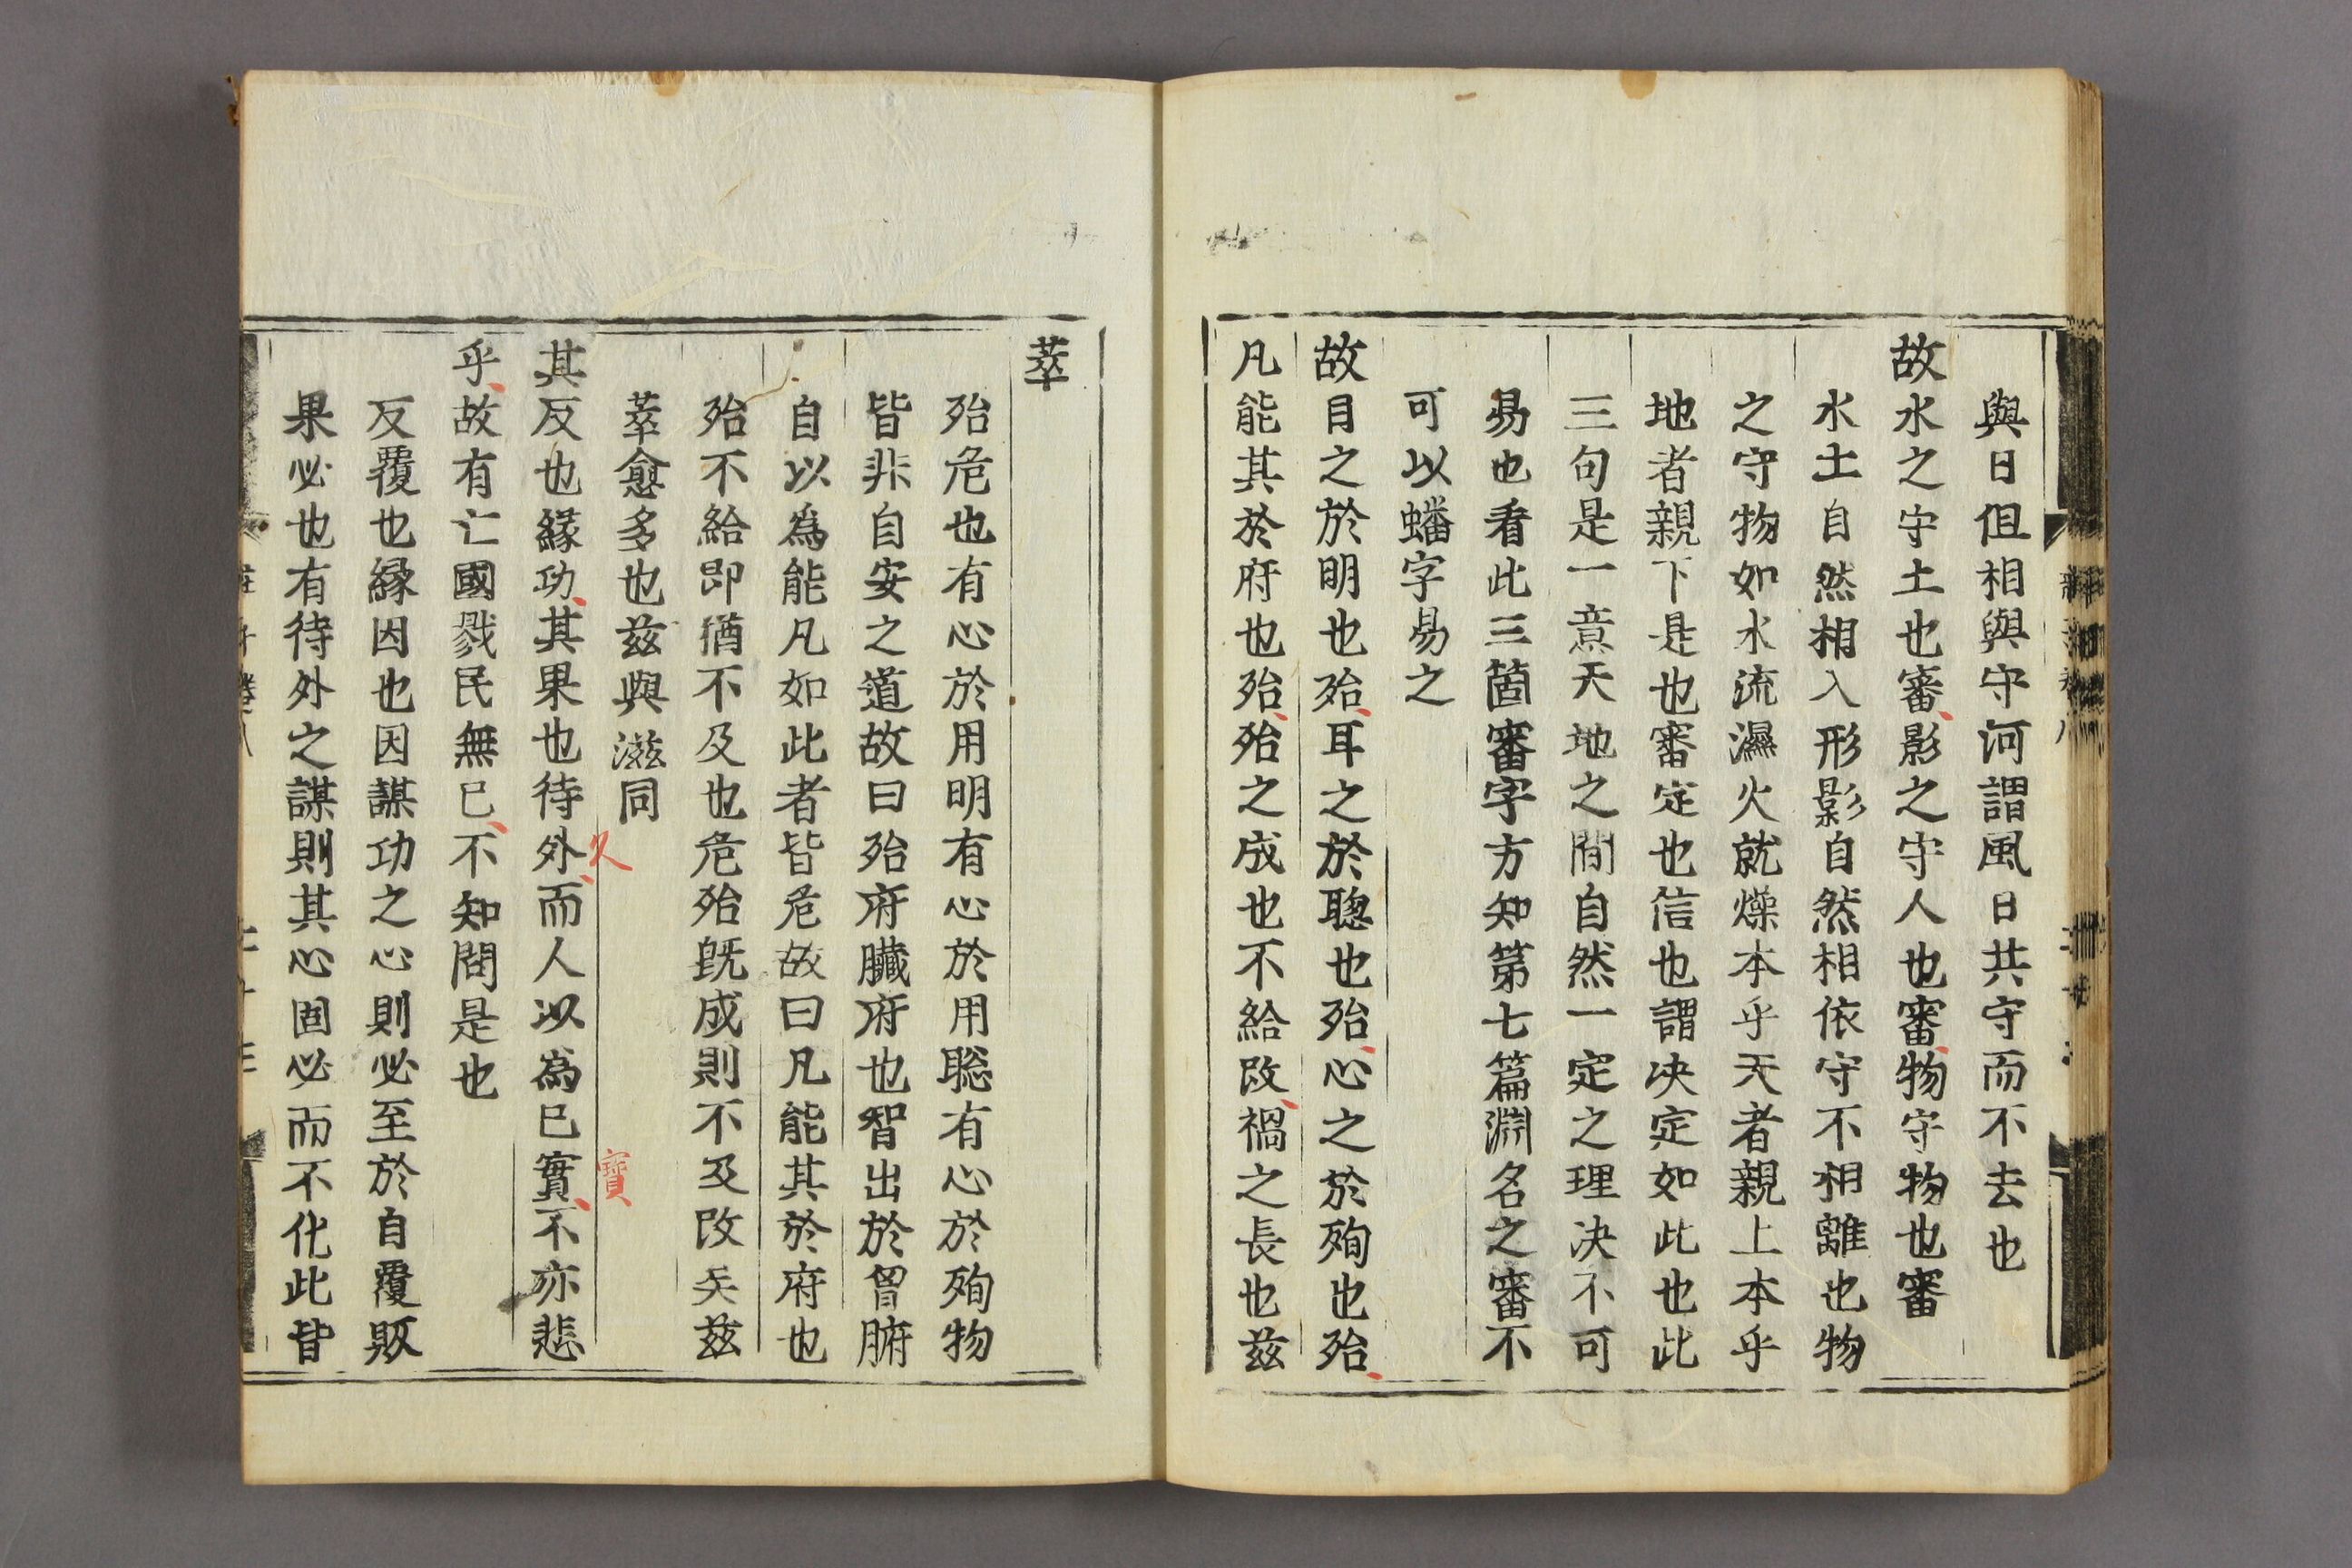 與日但相與守河謂風日共守而不去也
故水之守土也審影之守人也審物守物也審
水土自然相入形影自然相依守不相離也物
之守物如水流濕火就燥本乎天者親上本乎
地者親下是也審定也信也謂决定如此也此
三句是一意天地之間自然一定之理决不可
易也看此三箇審字方知第七篇淵名之審不
可以蟠字易之
故目之於明也殆耳之於聰也殆心之於殉也殆
凡能其於府也殆殆之成也不給改禍之長也茲
萃
殆危也有心於用明有心於用聡有心於殉物
皆非自安之道故曰殆府臟府也智出於胷腑
自以為能凡如此者皆危故曰凡能其於府也
殆不給即猶不及也危殆既成則不及改矣茲
萃愈多也茲與滋同
其反也緣功其果也待外而人以為已實不亦悲
久
寶
乎故有亡國戮民無已不知問是也
反覆也縁因也因謀功之心則必至於自覆敗
果必也有待外之謀則其心固必而不化此皆